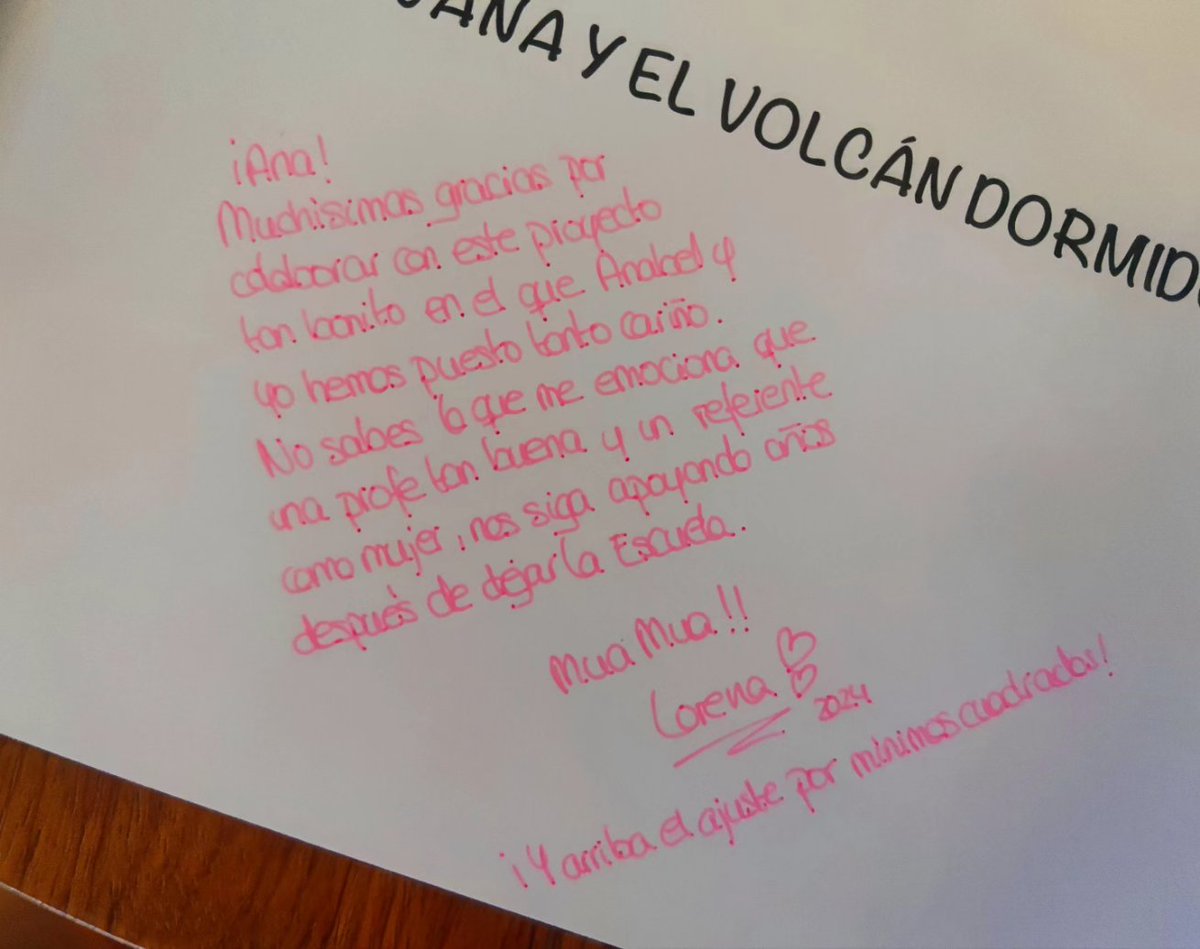 ANA Y EL VOLCÁN DORMID
¡Ana!
Muchísimas gracias por
colaborar con este proyecto
tan bonito en el que Anabel y
yo hemos puesto tanto cariño.
No sabes lo que me emociona que
una profe tan buena y un referente
como mujer, nos siga apoyando años
después de dejar la Escuela.
Mua Mua!!
Lorena
2024
¡Y arriba el ajuste por mínimos cuadrados!